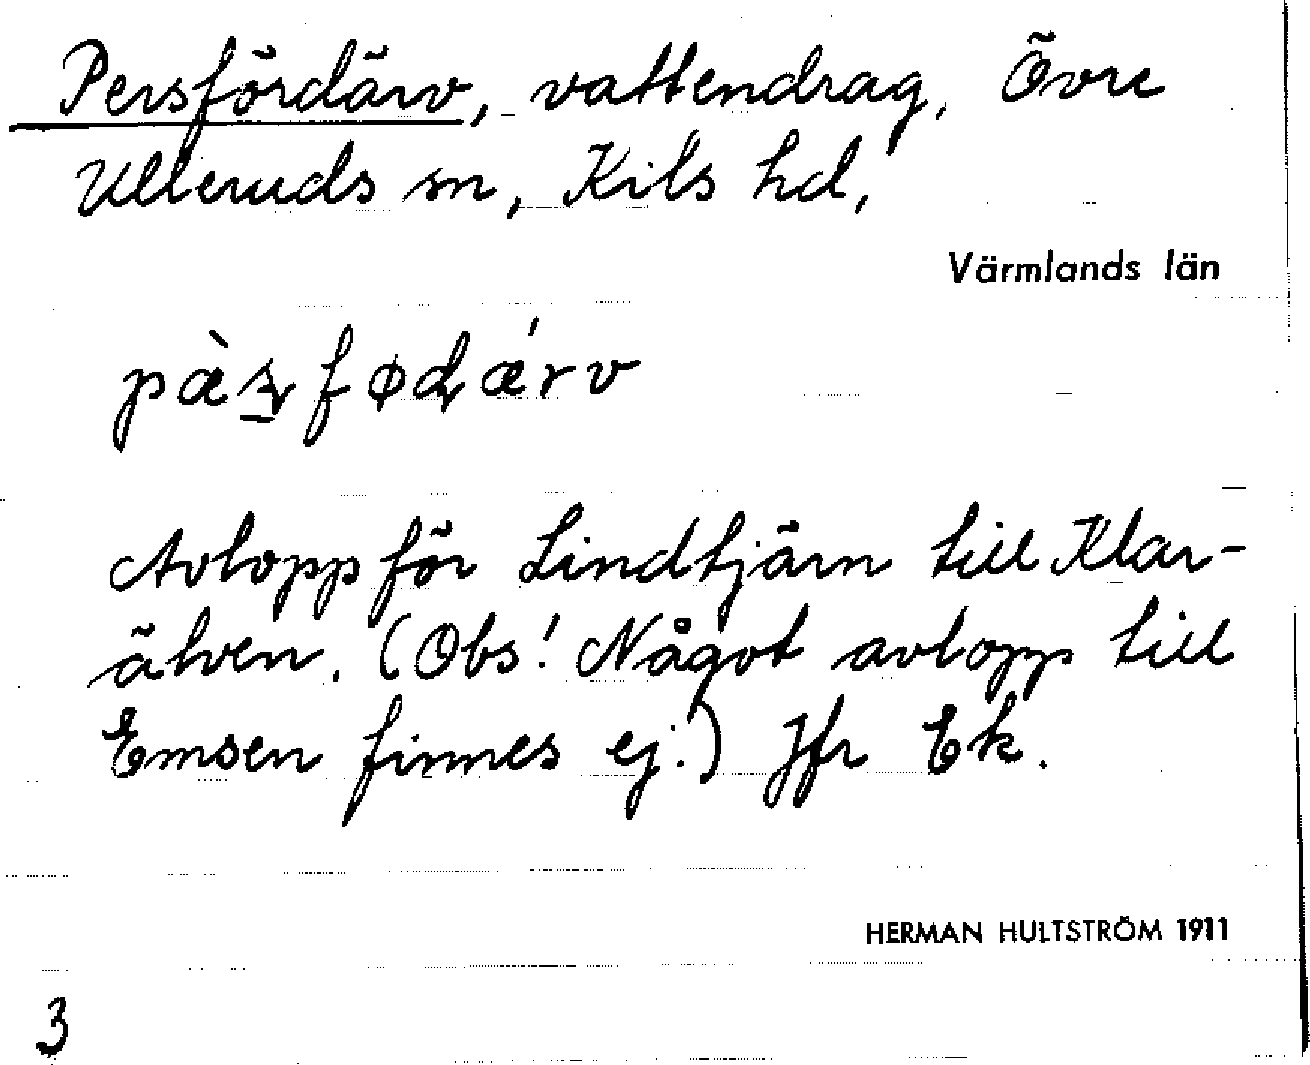 Persfördärv, vattendrag, Övre
Ulleruds sn, Kils hd,
Värmlands län
pæ̀ʂføɖǽrv
Avlopp för Lindtjärn till Klar-
älven. (Obs! Något avlopp till
Emsen finnes ej.) Jfr Ek.
HERMAN HULTSTRÖM 1911
3